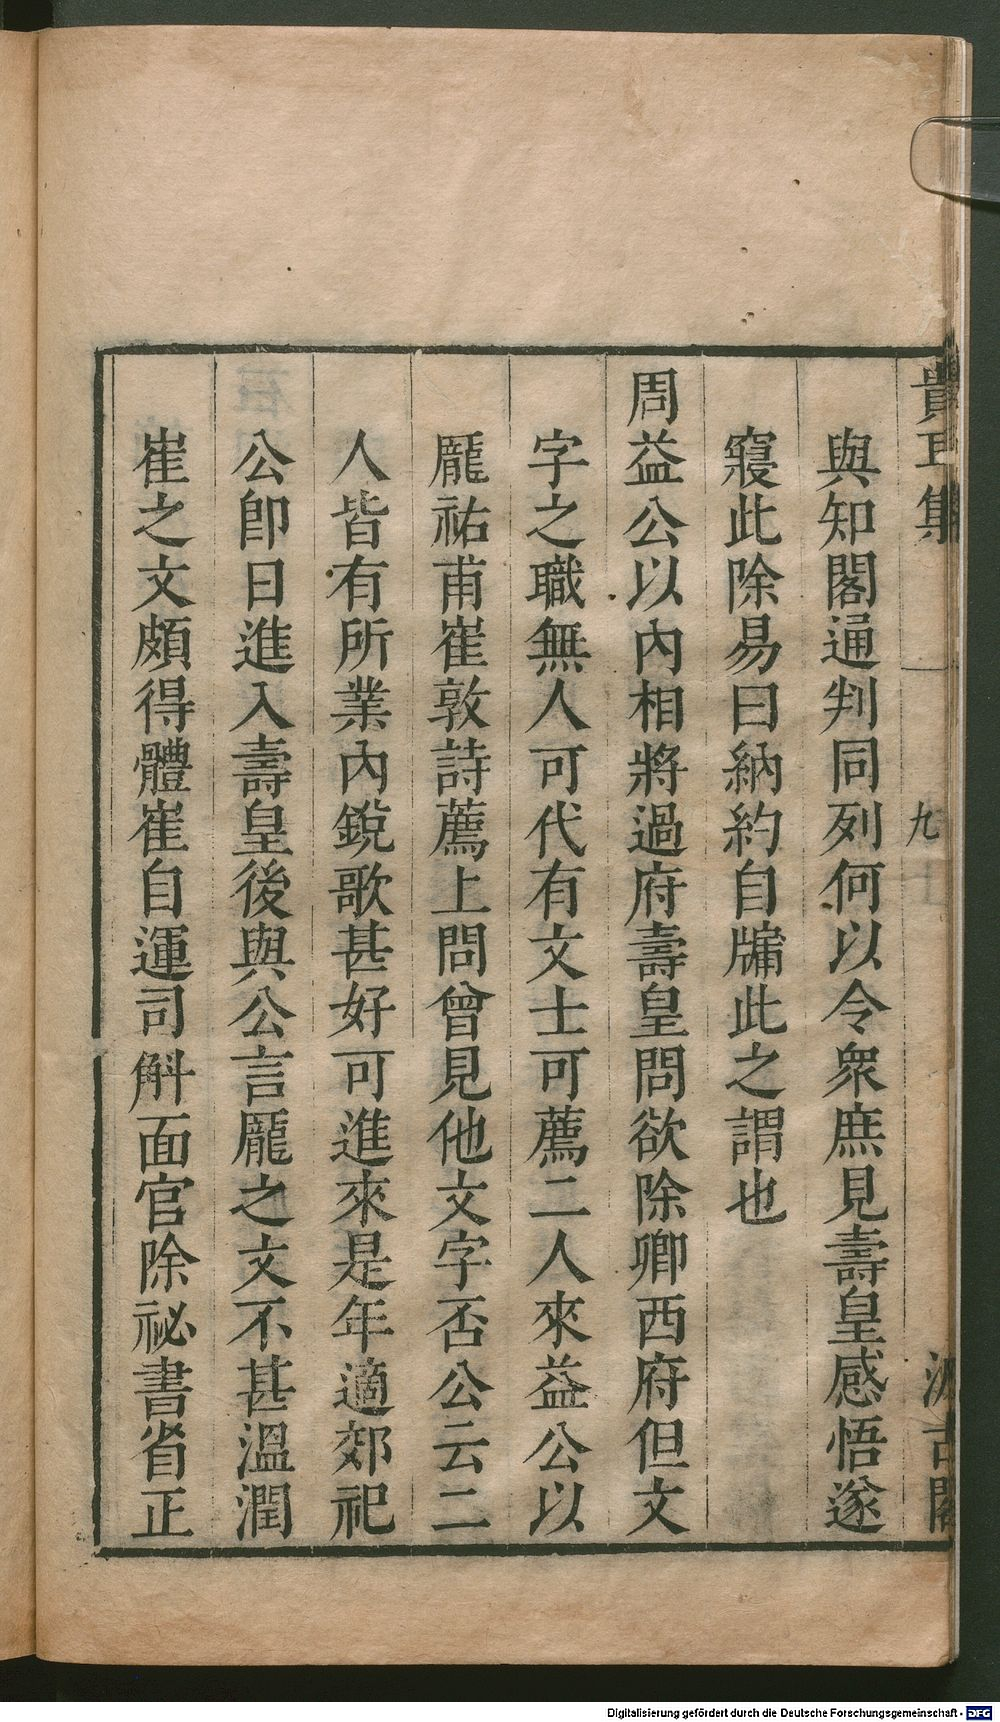 貴耳集
九
汲古閣
與知閣通判同列何以令衆庶見壽皇感悟遂
寢此除易曰納約自牖此之謂也
周益公以內相將過府壽皇問欲除卿西府但文
字之職無人可代有文士可薦二人來益公以
龎祐甫崔敦詩薦上問曾見他文字否公云二
人皆有所業內銳歌甚好可進來是年適郊祀
公卽日進入壽皇後與公言龎之文不甚溫潤
崔之文頗得體崔自運司斛面官除祕書省正
Digitalisierung gefördert durch die Deutsche Forschungsgemeinschaft - DFG